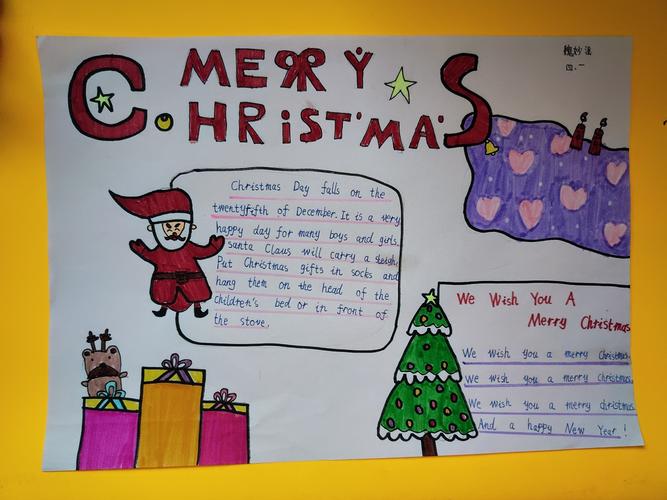 MERRY
CHRISTMAS
四.一
Christmas Day falls on the
twentyfifth of December. It is a very
happy day for many boys and girls.
Santa Claus will carry a sleigh,
Put Christmas gifts in socks and
hang them on the head of the
children's bed or in front of
the stove.
We Wish You A
Merry Christmas
We wish you a merry Christmas,
We wish you a merry Christmas,
We wish you a merry christmas
And a happy New Year!